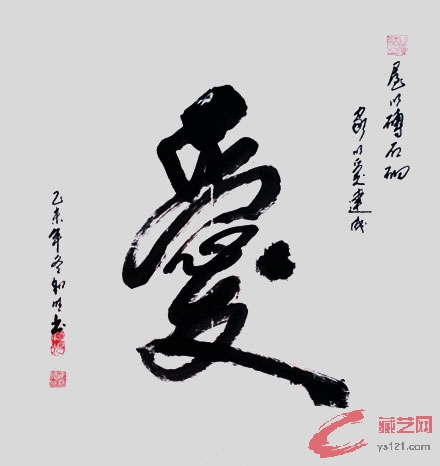 屋以磚石砌
家以愛建成
愛
乙未年冬
藏艺网
ys121.com